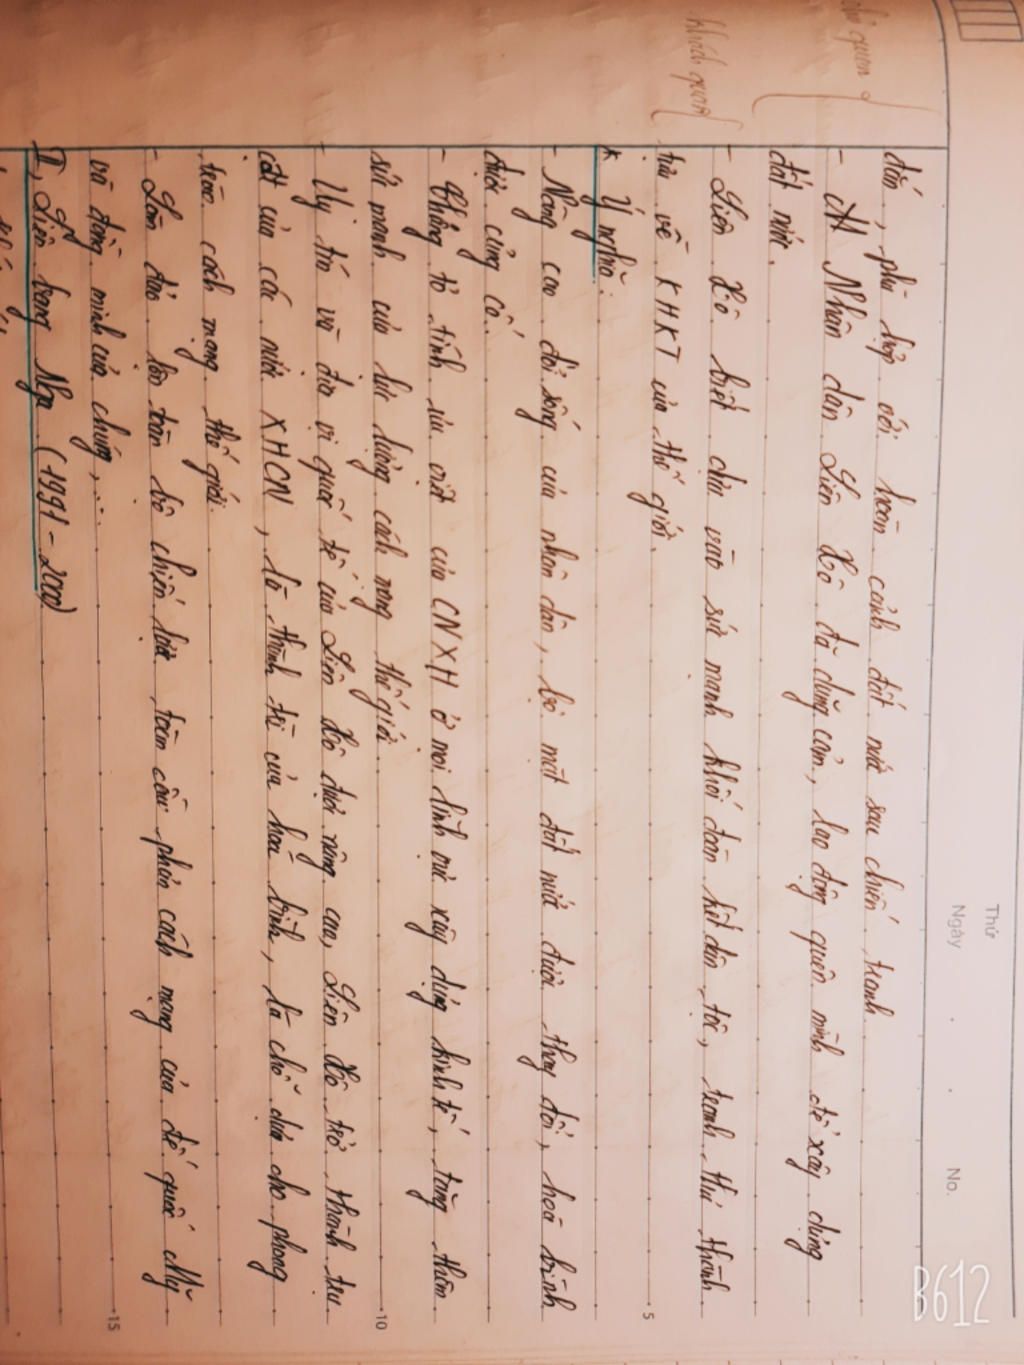 Thứ
Ngày
No.
chủ quan
khách quan
đắn, phù hợp với hoàn cảnh đất nước sau chiến tranh.
- Nhân dân Liên Xô đã dũng cảm, lao động quên mình để xây dựng
đất nước.
- Liên Xô biết dựa vào sức mạnh khối đoàn kết dân tộc, tranh thủ thành
tựu về KHKT của thế giới.
* Ý nghĩa.
- Nâng cao đời sống của nhân dân, bộ mặt đất nước được thay đổi, hoà bình
được củng cố.
- Chứng tỏ tính ưu việt của CNXH ở mọi lĩnh vực xây dựng kinh tế, tăng thêm
sức mạnh của lực lượng cách mạng thế giới.
- Uy tín và địa vị quốc tế của Liên Xô được nâng cao, Liên Xô trở thành trụ
cột của các nước XHCN, là thành trì của hoà bình, là chỗ dựa cho phong
trào cách mạng thế giới.
- Làm đảo lộn toàn bộ chiến lược toàn cầu phản cách mạng của đế quốc Mỹ
và đồng minh của chúng,...
II, Liên bang Nga (1991 - 2000)
5
10
15
B612